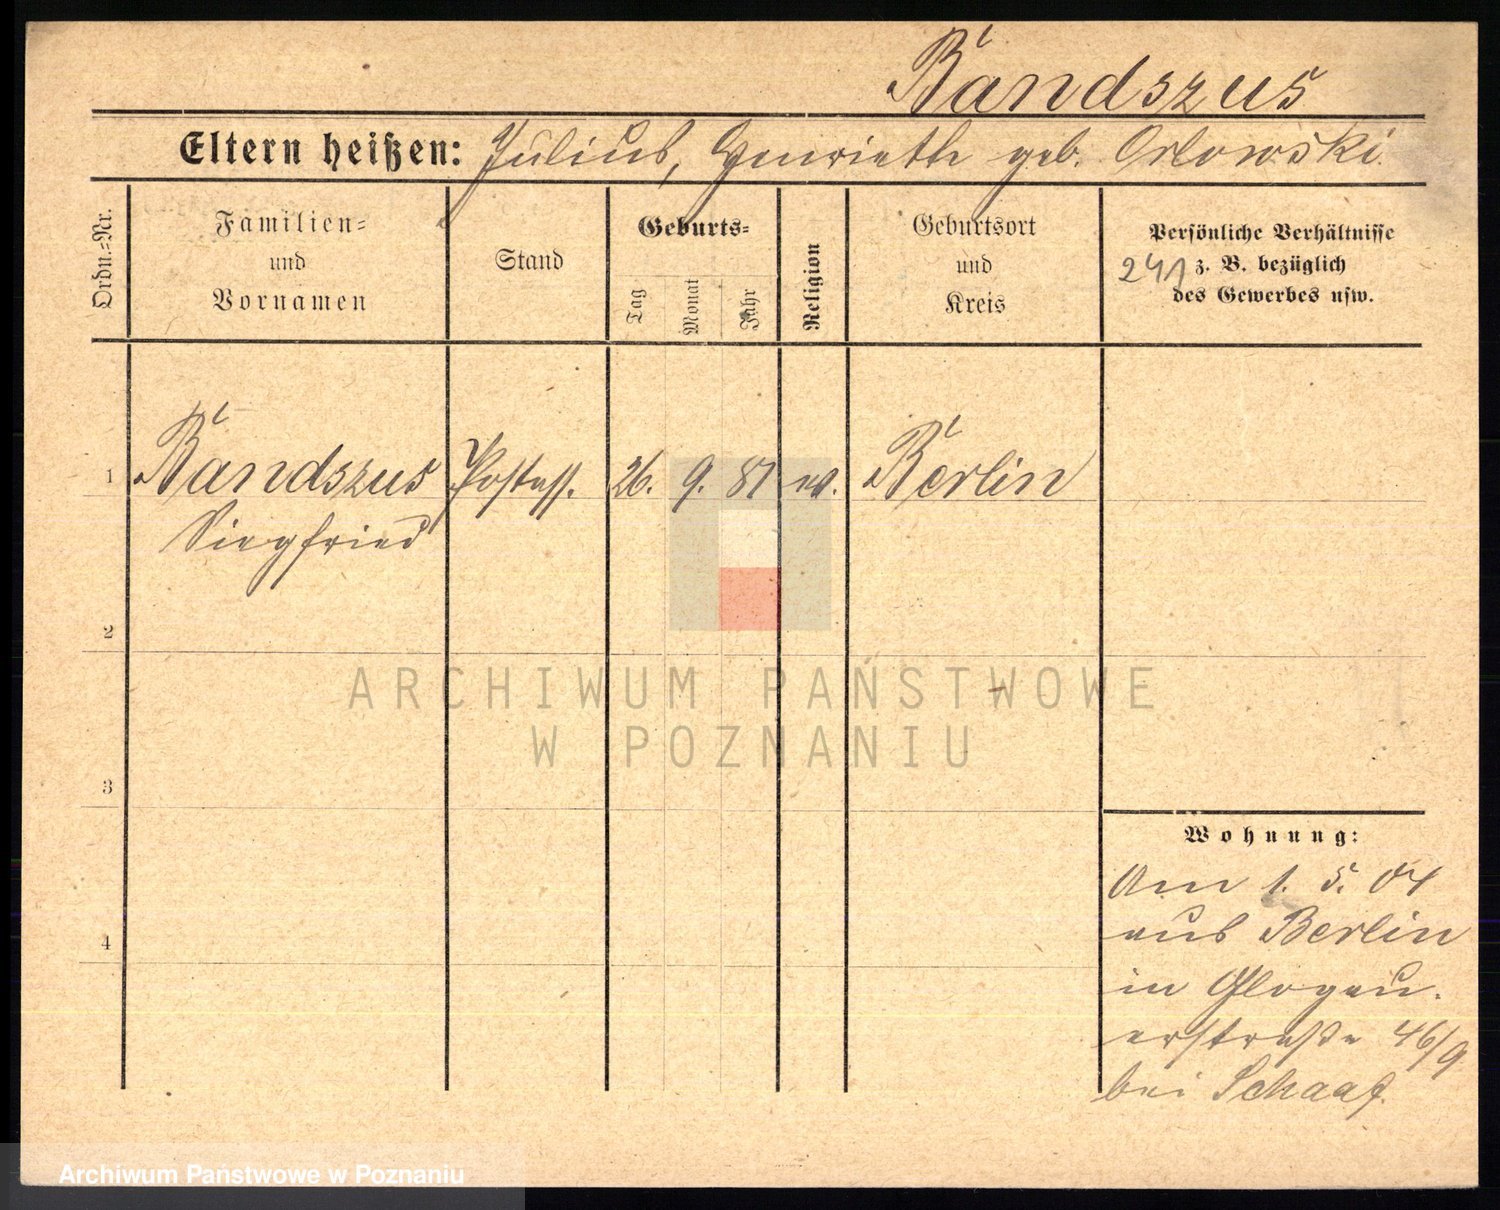 Bandszus
Eltern heißen: Julius, Henriette geb. Orlowski.
Ordn.=Nr.
Familien=
und
Vornamen
Stand
Geburts=
Tag
Monat
Jahr
Religion
Geburtsort
und
Kreis
Persönliche Verhältnisse
241 z. B. bezüglich
des Gewerbes usw.
1 Bandszus Postass. 26. 9. 81 ev. Berlin
Siegfried
2
ARCHIWUM PAŃSTWOWE
W POZNANIU
3
Wohnung:
Am 1. 5. 04
aus Berlin
4
in Glogau-
erstraße 46/9
bei Schaaf.
Archiwum Państwowe w Poznaniu